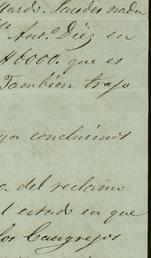 tardo. Puedes nada
Anto. Díez en
$6000. que es
También trajo
ya concluimos
a del reclamo
l estado en que
los Cangrejos